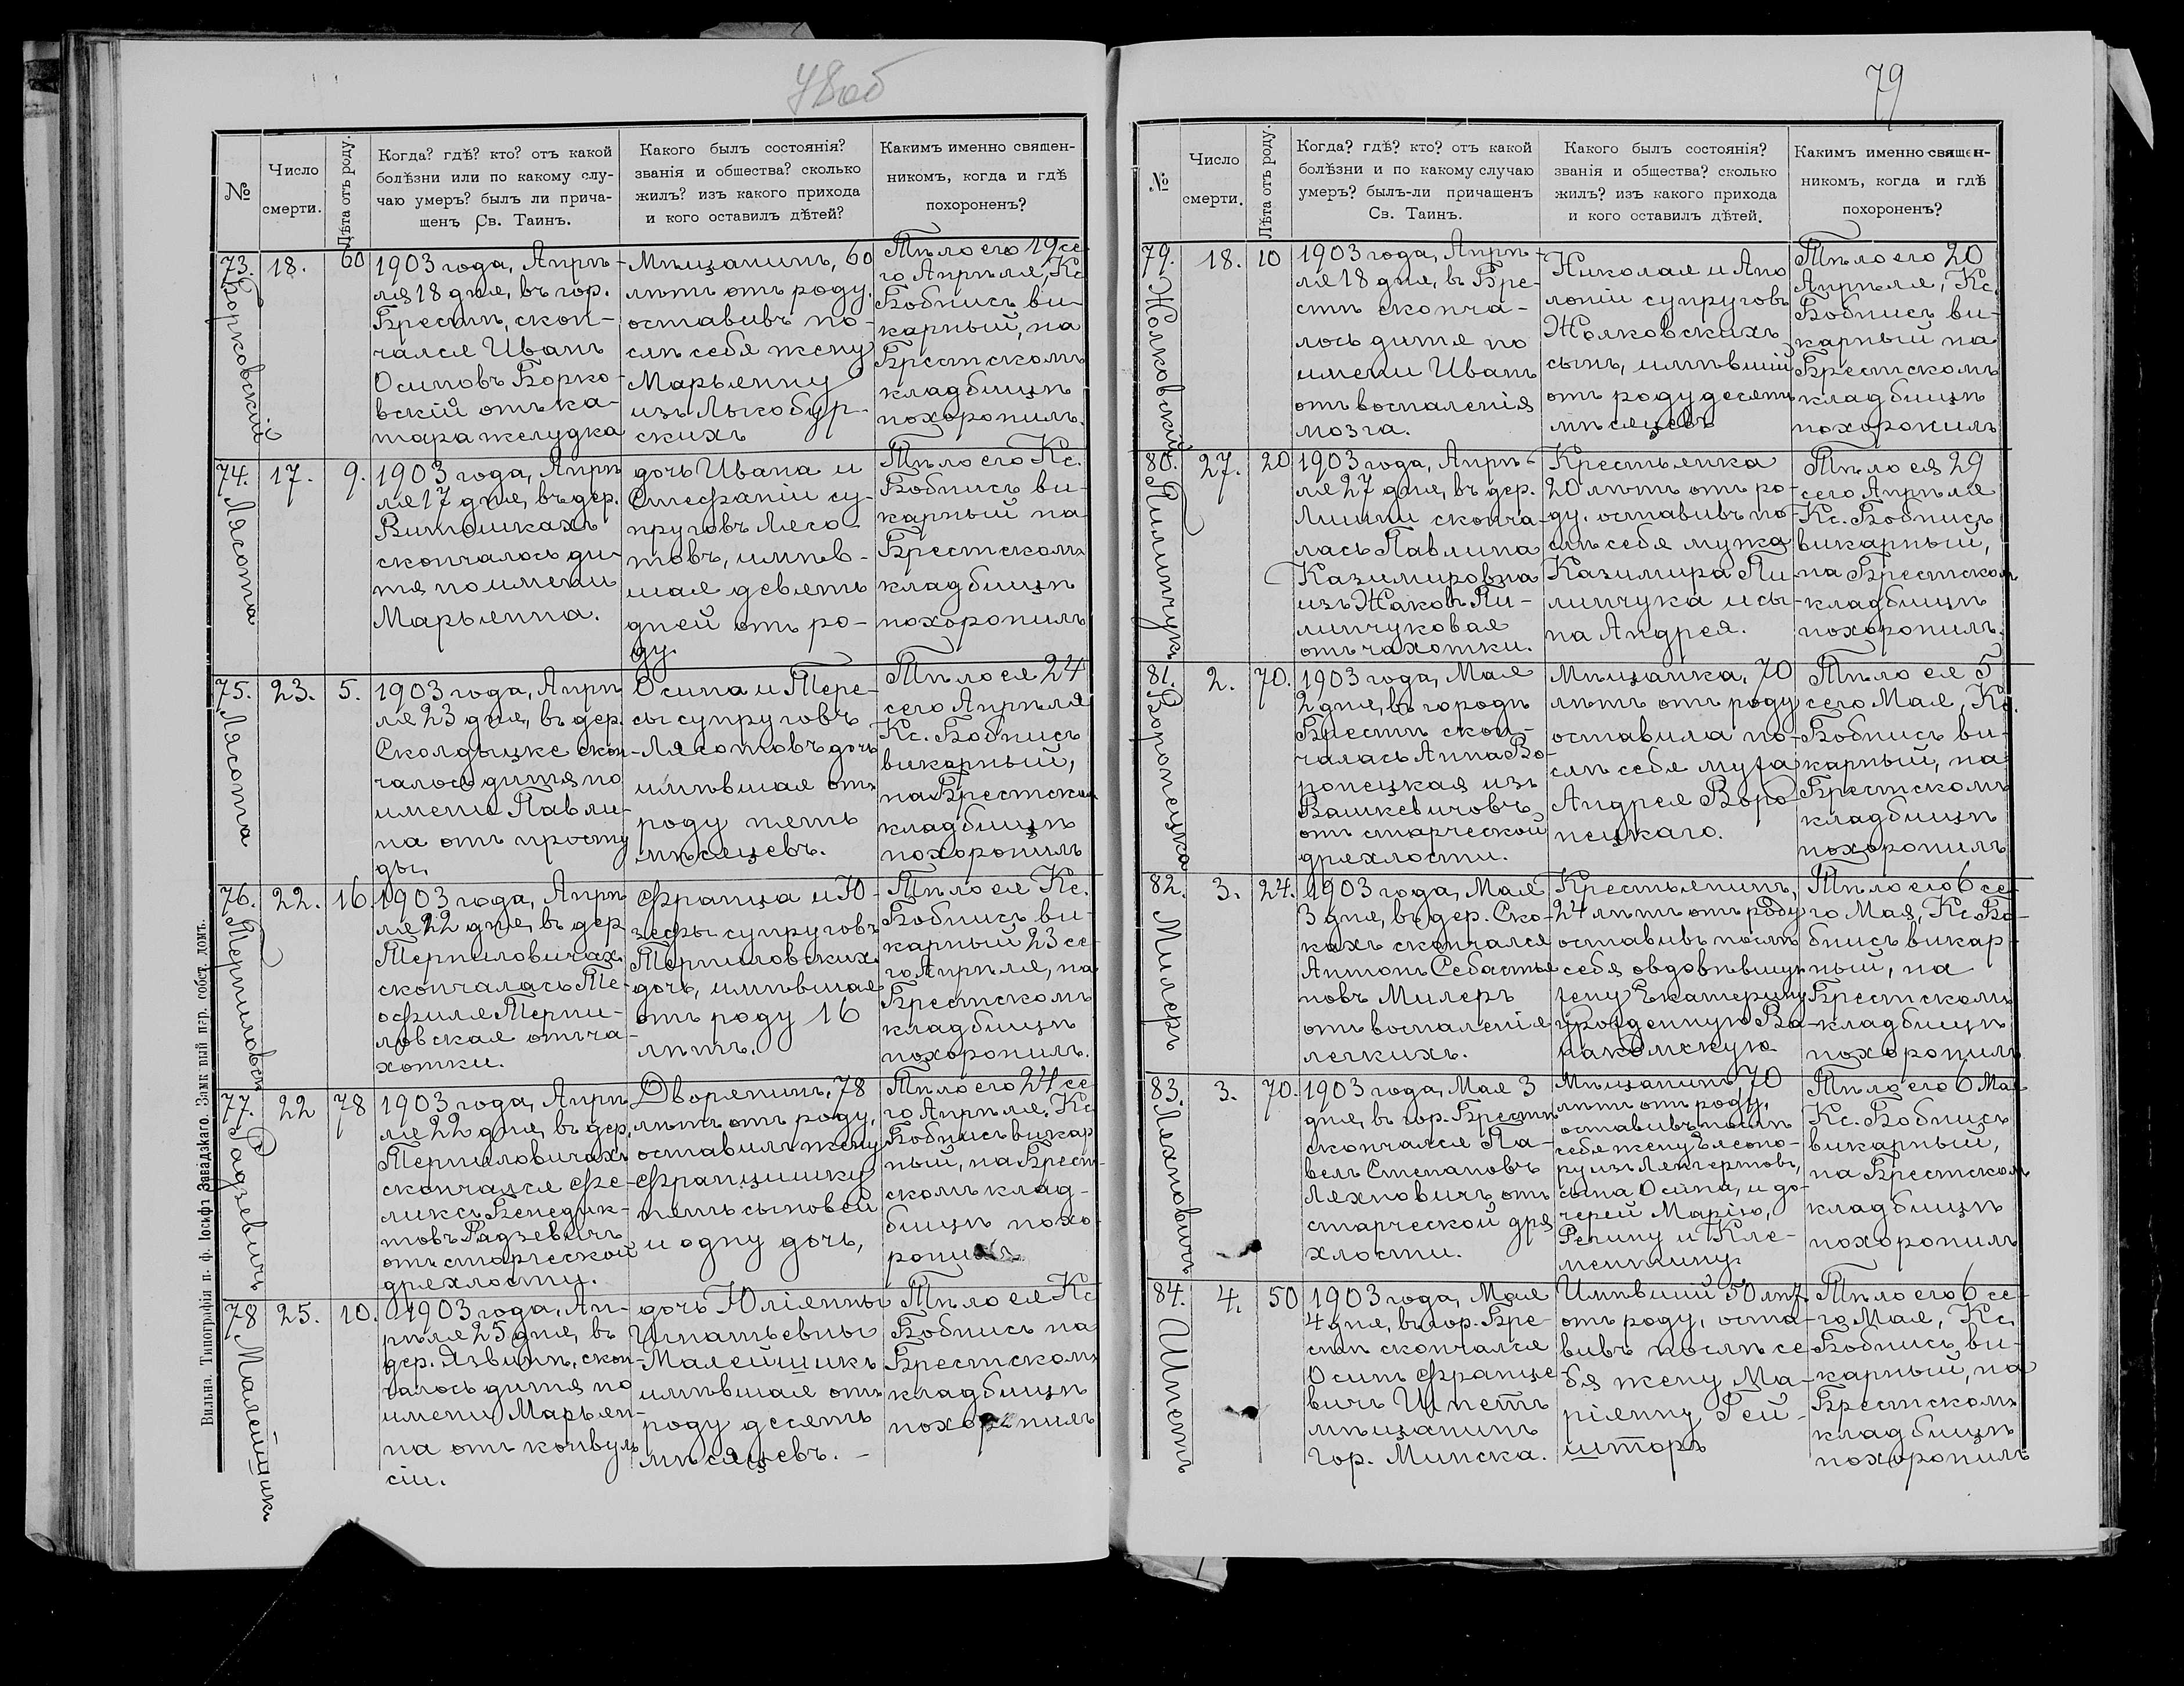 78об
№
Число
смерти.
Лѣта отъ роду.
Когда? гдѣ? кто? отъ какой
болѣзни или по какому слу-
чаю умеръ? былъ ли прича-
щенъ Св. Таинъ.
Какого былъ состоянія?
званія и общества? сколько
жилъ? изъ какого прихода
и кого оставилъ дѣтей?
Какимъ именно священ-
никомъ, когда и гдѣ
похороненъ?
73.
Борковскій
18.
60
1903 года, Апрѣ-
ля 18 дня, въ гор.
Брестѣ, скон-
чался Иванъ
Осиповъ Борко-
вскій отъ ка-
тара желудка
Мѣщанинъ, 60
лѣтъ отъ роду.
оставивъ по-
слѣ себя жену
Марьянну
изъ Лыкобур-
скихъ
Тѣло его 19 се-
го Апрѣля, Кс
Бобнисъ ви-
карный, на
Брестскомъ
кладбищѣ
похоронилъ.
74.
Лясота
17.
9.
1903 года, Апрѣ
ля 17 дня, въ дер.
Витошкахъ
скончалось ди-
тя по имени
Марьянна.
дочь Ивана и
Стефаніи су-
пруговъ Лясо-
товъ, имѣв-
шая девять
дней отъ ро-
ду
Тѣло его Кс.
Бобнисъ ви-
карный на
Брестскомъ
кладбищѣ
похоронилъ
75.
Лясота
23.
5.
1903 года, Апрѣ
ля 23 дня, въ дер.
Сколдыцке скон-
чалось дитя по
имени Павли-
на отъ просту
ды.
Осипа и Тере-
сы супруговъ
Лясотовъ дочь
имѣвшая отъ
роду пять
мѣсяцевъ.
Тѣло ея 24
сего Апрѣля
Кс. Бобнисъ
викарный,
на Брестскомъ
кладбищѣ
похоронилъ
76.
Терпиловская
22.
16.
1903 года, Апрѣ
ля 22 дня, въ дер
Терпиловичахъ
скончалась Те-
офиля Терпи-
ловская отъ ча-
хотки.
Франца и Ю-
зефы супруговъ
Терпиловскихъ
дочь, имѣвшая
отъ роду 16
лѣтъ.
Тѣло ея Кс.
Бобнисъ ви-
карный 23 се-
го Апрѣля, на
Брестскомъ
кладбищѣ
похоронилъ.
77.
Радзевичъ
22
78
1903 года, Апрѣ
ля 22 дня, въ дер.
Терпиловичахъ
скончался Фе-
ликсъ Бенедик-
товъ Радзевичъ
отъ старческой
дряхлости.
Дворянинъ, 78
лѣтъ отъ роду,
оставилъ жену
Францишку
пять сыновей
и одну дочь,
Тѣло его 24 се-
го Апрѣля, Кс
Бобнисъ викар
ный, на Брест-
скомъ клад-
бищѣ похо-
ронилъ
78
Малейщикъ
25.
10.
1903 года, Ап-
рѣля 25 дня, въ
дер. Язвинѣ, скон-
чалось дитя по
имени Марьян-
на отъ конвуль
сіи.
дочь Юліянны
Игнатьевны
Малейщикъ
имѣвшая отъ
роду десять
мѣсяцевъ. -
Тѣло ея Кс
Бобнисъ на
Брестскомъ
кладбищѣ
похоронилъ
Вильна. Типографія п. ф. Іосифа Завадзкаго. Замковый пер. собст. домъ.
79
№
Число
смерти.
Лѣта отъ роду.
Когда? гдѣ? кто? отъ какой
болѣзни и по какому случаю
умеръ? былъ-ли причащенъ
Св. Таинъ.
Какого былъ состоянія?
званія и общества? сколько
жилъ? изъ какого прихода
и кого оставилъ дѣтей.
Какимъ именно священ-
никомъ, когда и гдѣ
похороненъ?
79.
Жолковскій
18.
10
1903 года, Апрѣ-
ля 18 дня, въ Бре-
стѣ сконча-
лось дитя по
имени Иванъ
отъ воспаленія
мозга.
Николая и Апо
лоніи супруговъ
Жолковскихъ
сынъ, имѣвшій
отъ роду десять
мѣсяцевъ
Тѣло его 20
Апрѣля, Кс.
Бобнисъ ви-
карный на
Брестскомъ
кладбищѣ
похоронилъ
80.
Пилинчукъ
27.
20
1903 года, Апрѣ-
ля 27 дня, въ дер.
Лишни сконча-
лась Павлина
Казимировна
изъ Жаковъ Пи-
линчуковая
отъ чахотки.
Крестьянка
20 лѣтъ отъ ро-
ду. оставивъ по-
слѣ себя мужа
Казимира Пи-
линчука и сы-
на Андрея.
Тѣло ея 29
сего Апрѣля
Кс. Бобнисъ
викарный,
на Брестскомъ
кладбищѣ
похоронилъ.
81.
Воронецкая
2.
70.
1903 года, Мая
2 дня, въ городѣ
Брестѣ скон-
чалась Анна Во-
ронецкая изъ
Вашкевичовъ
отъ старческой
дряхлости.
Мѣщанка, 70
лѣтъ отъ роду
оставила по-
слѣ себя мужа
Андрея Воро-
нецкаго.
Тѣло ея 5
сего Мая, Кс.
Бобнисъ ви-
карный, на
Брестскомъ
кладбищѣ
похоронилъ
82.
Милеръ
3.
24.
1903 года, Мая
3 дня, въ дер. Ско-
кахъ скончался
Антонъ Себастья
новъ Милеръ
отъ воспаленія
легкихъ.
Крестьянинъ,
24 лѣтъ отъ роду
оставивъ послѣ
себя овдовѣвшую
жену Екатерину
урожденную Ва-
накомскую
Тѣло его 6 се-
го Мая, Кс. Бо-
бнисъ викар-
ный, на
Брестскомъ
кладбищѣ
похоронилъ
83.
Лехновичъ
3.
70.
1903 года, Мая 3
дня, въ гор. Брестѣ
скончался Па-
велъ Степановъ
Ляхновичъ отъ
старческой дря
хлости.
Мѣщанинъ, 70
лѣтъ отъ роду,
оставивъ послѣ
себя жену Елеоно-
ру изъ Ленгертовъ,
сына Осипа, и до-
черей Марію,
Регину и Кле-
ментину
Тѣло его 6 Мая
Кс. Бобнисъ
викарный,
на Брестскомъ
кладбищѣ
похоронилъ
84.
Шпетъ
4.
50
1903 года, Мая
4 дня, въ гор. Бре-
стѣ скончался
Осипъ Францe-
вичъ Шпетъ
мѣщанинъ
гор. Минска.
Имѣвшій 50 лѣт.
отъ роду, оста-
вивъ послѣ се
бя жену Ма-
ріянну Гей-
шторъ
Тѣло его 6 се-
го Мая, Кс.
Бобнисъ, ви-
карный, на
Брестскомъ
кладбищѣ
похоронилъ